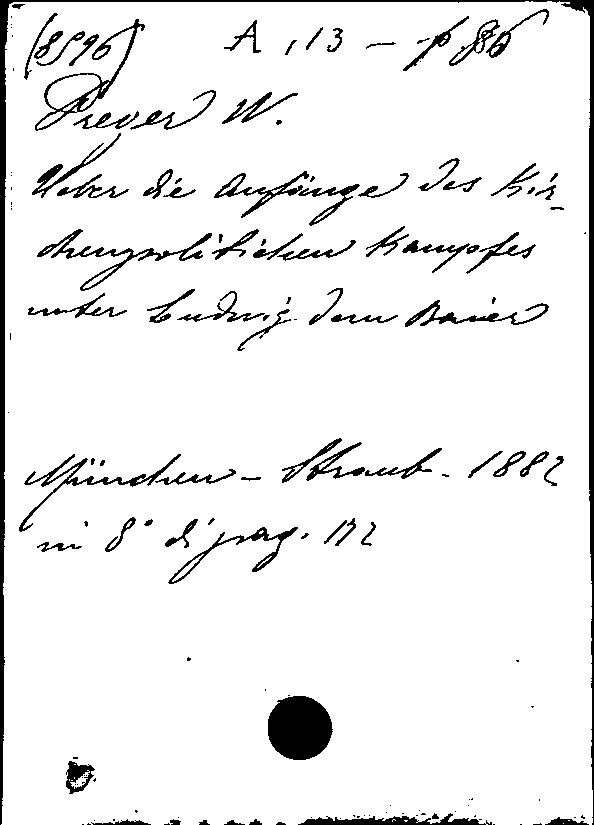 (8596) A , 13 —
Preger W.
Ueber die Anfänge des Kir-
chenpolitichen Kampfes
unter Ludwig dem Baier
München - Straub - 1882
in 8° di pag.